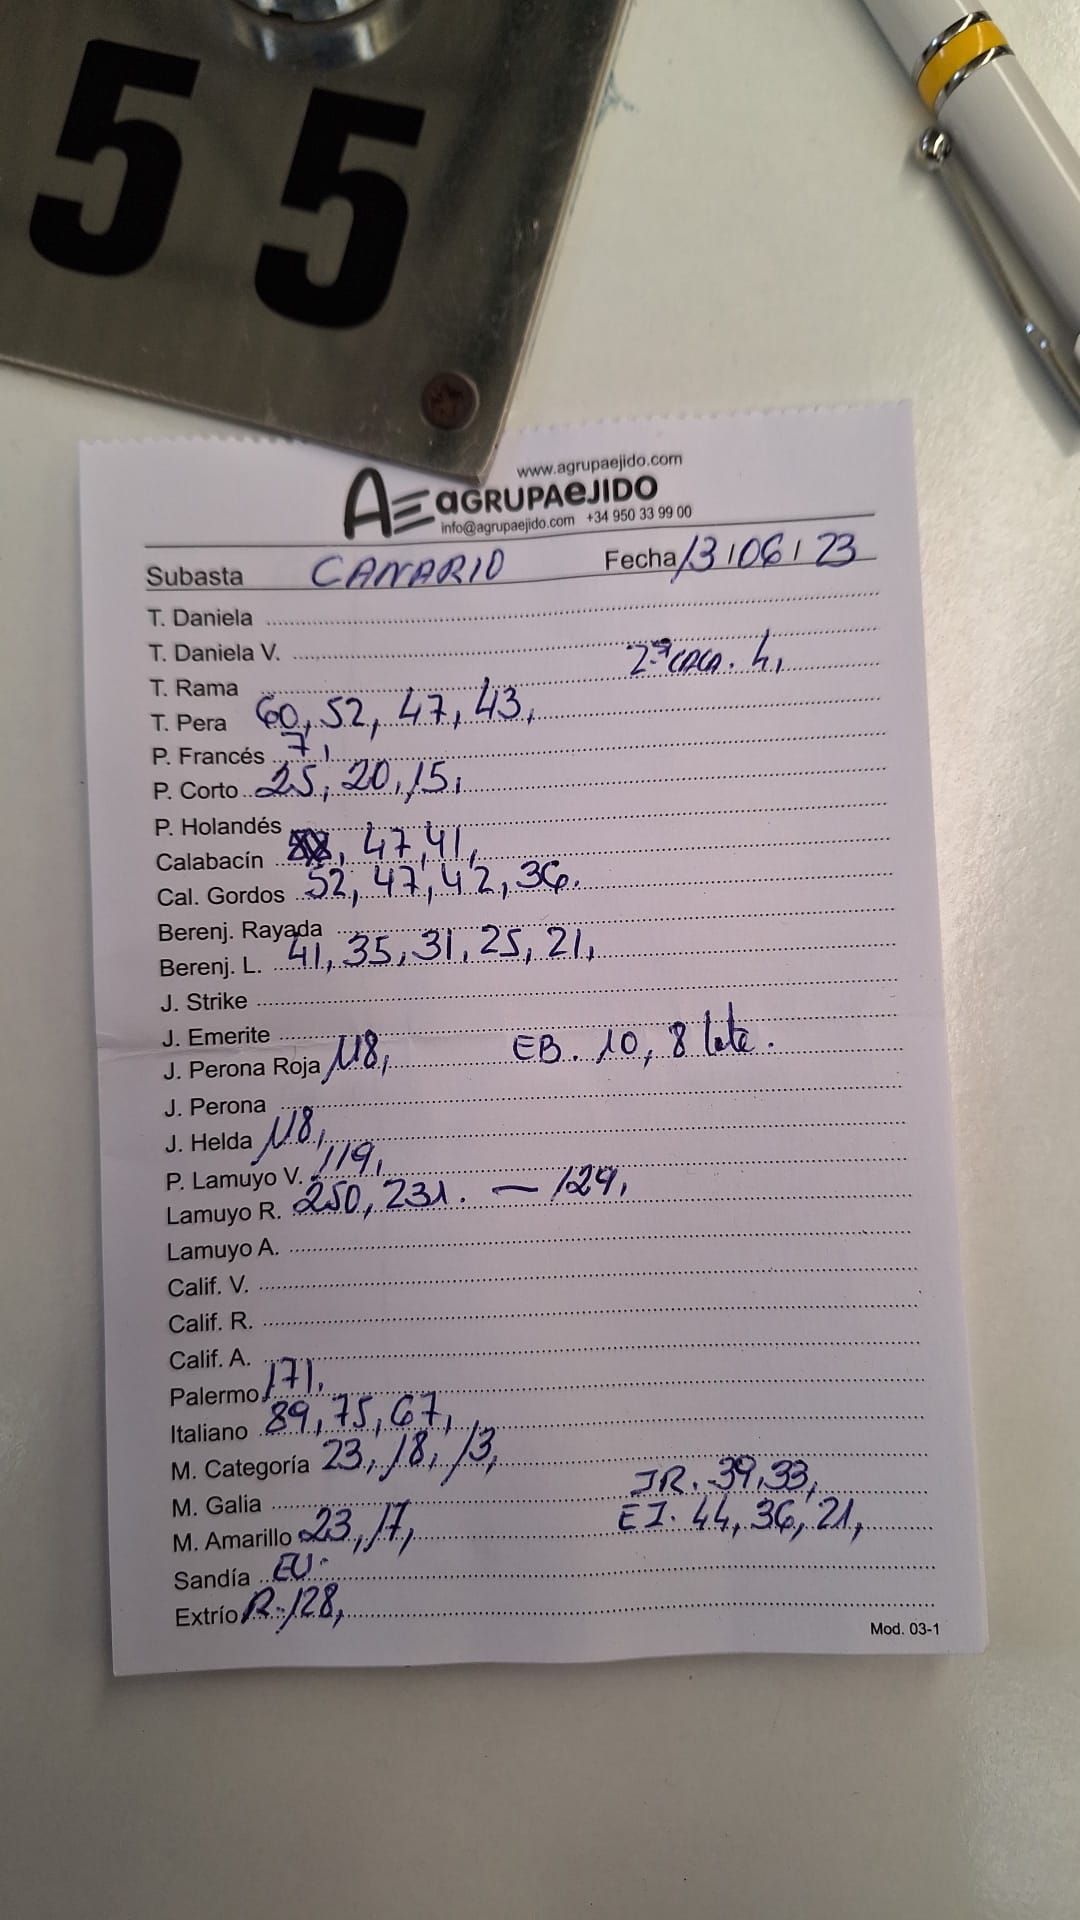 55
www.agrupaejido.com
AE aGRUPAeJIDO
info@agrupaejido.com +34 950 33 99 00
Subasta CANARIO Fecha 13/06/23
T. Daniela
T. Daniela V.
T. Rama 2ª CACA. 4,
T. Pera 60, 52, 47, 43,
P. Francés 7,
P. Corto 25, 20, 15,
P. Holandés
Calabacín 47, 41,
Cal. Gordos 52, 47, 42, 36.
Berenj. Rayada
Berenj. L. 41, 35, 31, 25, 21,
J. Strike
J. Emerite
J. Perona Roja 118, EB. 10, 8 lote.
J. Perona
J. Helda 118,
P. Lamuyo V. 119,
Lamuyo R. 250, 231. — 129,
Lamuyo A.
Calif. V.
Calif. R.
Calif. A.
Palermo 171,
Italiano 89, 75, 67,
M. Categoría 23, 18, 13,
M. Galia JR. 39, 33,
M. Amarillo 23, 17, EJ. 44, 36, 21,
Sandía EU.
Extrío R. 128,
Mod. 03-1